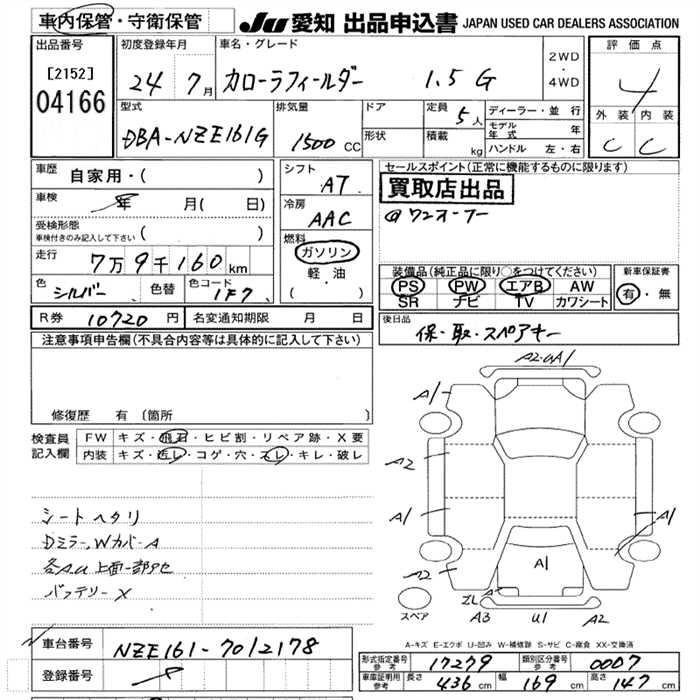 車内保管・守衛保管
JU 愛知 出品申込書 JAPAN USED CAR DEALERS ASSOCIATION
出品番号
[2152]
04166
初度登録年月
24 7月
車名・グレード
カローラフィールダー 1.5 G
2WD
・
4WD
評価点
4
外装 内装
C C
型式
DBA-NZE161G
排気量
1500 CC
ドア
形状
定員 5人
積載 kg
ディーラー・並行
モデル年式 年
ハンドル 左・右
車歴
自家用・( )
車検
年 月( 日)
受検形態
車検付きのみ記入して下さい ( )
走行
7万9千160km
色 シルバー 色替 色コード 1F7
シフト AT
冷房 AAC
燃料
ガソリン
軽・油
( ・ )
セールスポイント(正常に機能するものに限ります)
買取店出品
ワンオーナー
装備品(純正品に限り○をつけてください)
PS PW エアB AW
SR ナビ TV カワシート
新車保証書
有・無
R券 10720円 名変通知期限 月 日
後日品
保・取・スペアキー
注意事項申告欄(不具合内容等は具体的に記入して下さい)
修復歴 有 (箇所 )
検査員記入欄
FW キズ・飛石・ヒビ割・リペア跡・X要
内装 キズ・汚レ・コゲ・穴・スレ・キレ・破レ
シートヘタリ
Dミラー,WカバーA
各A.U 上面一部タセ
バッテリーX
A2・UA1
A1
A1
A2
A1
A1
A2
A1
A
ZL
A3 U1 A2
スペア
A-キズ E-エクボ U-凹み W-補修跡 S-サビ C-腐食 XX-交換済
車台番号 NZE161-7012178
登録番号
形式指定番号 参考 17279 類別区分番号 参考 0007
車庫証明用 参考 長さ 436cm 幅 169cm 高さ 147cm